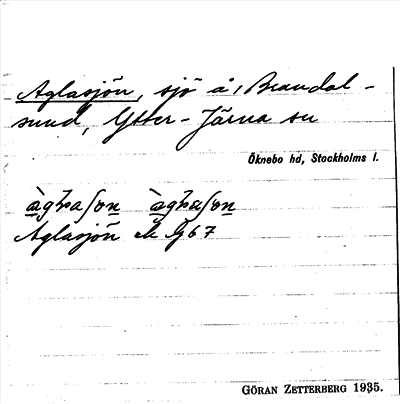 Aglasjön, sjö å, Brandal-
sund, Ytter-Järna sn
Öknebo hd, Stockholms l.
Aglasjön M G67
GÖRAN ZETTERBERG 1935.